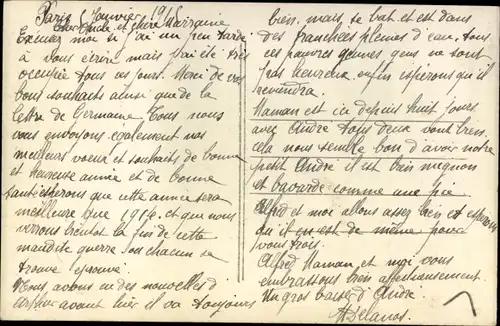 Paris Janvier 1915
Cher Oncle et chère Marraine
Excusez moi si j'ai un peu tardé
à vous écrire mais j'ai été très
occupée tous ces jours. Merci de vos
bons souhaits ainsi que de la
lettre de Germaine. Tous nous
vous envoyons également nos
meilleurs voeux et souhaits de bonne
et heureuse année et de bonne
santé espérons que cette année sera
meilleure que 1914 et que nous
verrons bientôt la fin de cette
maudite guerre où chacun se
trouve éprouvé.
Nous avons eu des nouvelles d'
Arthur avant hier il va toujours
bien, mais se bat et est dans
des tranchées pleines d'eau, tous
ces pauvres gens ne sont
pas heureux enfin espérons qu'il
reviendra.
Maman est ici depuis huit jours
avec André tous deux vont bien.
cela nous semble bon d'avoir notre
petit André il est bien mignon
et bavarde comme une pie
Alfred et moi allons assez bien et
qu'il en est de même pour
vous trois.
Alfred Maman et moi vous
embrassons bien affectueusement.
Un gros baiser d'André